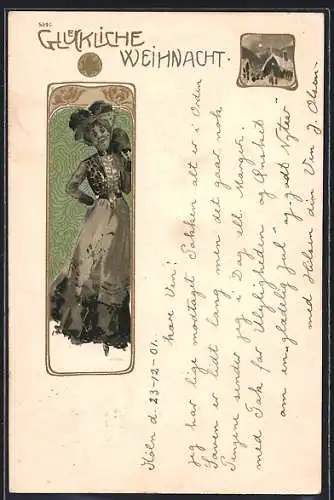 Glückliche
Weihnacht.
Köln d. 23-12-01.
kære Ven!
jeg har lige modtaget Pakken alt er i Orden
Saven er lidt lang men det gaar nok.
Pengene sender jeg i Dag ell. Morgen.
med Tak for Ulejligheden og Ønsket
om en "glædelig Jul" og "godt Nytaar"
med Hilsen din Ven J. Olsen.